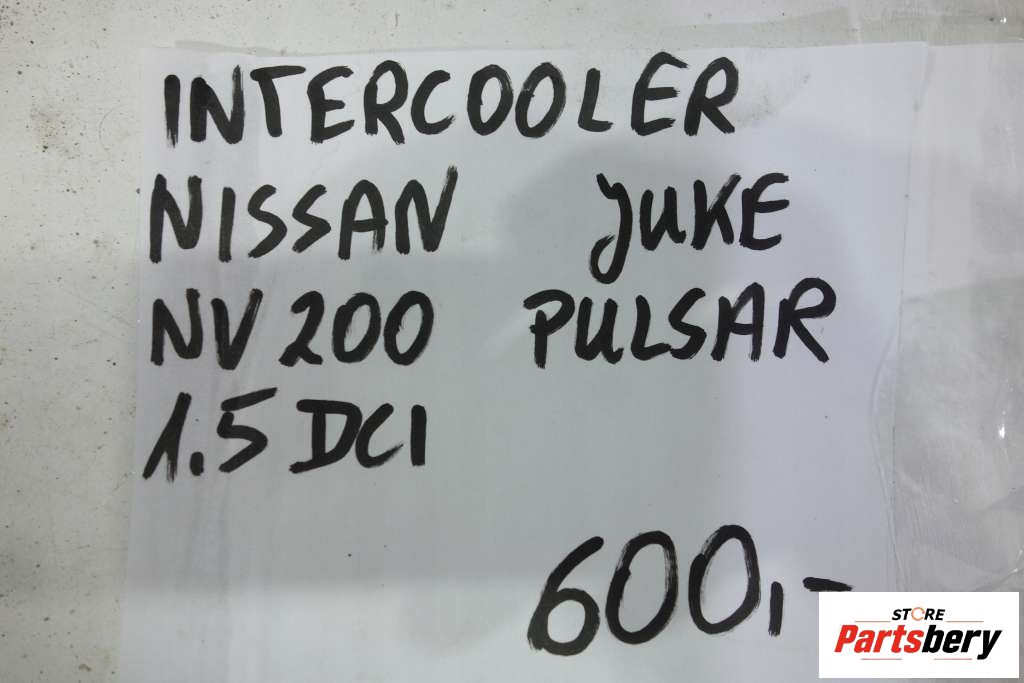 INTERCOOLER
NISSAN JUKE
NV200 PULSAR
1.5 DCI
600,-
STORE
Partsbery